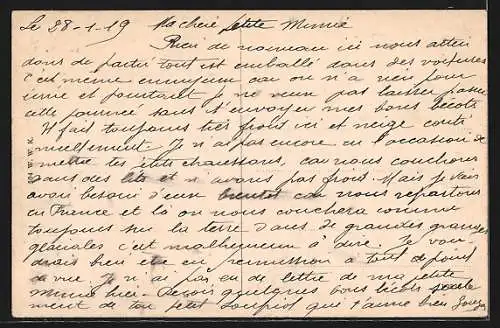 Le 28-1-19 Ma cheie petite Mimie
Rien de nouveau ici nous atten
dons de partir tout est emballé dans des voitures
C'est meme ennuyeux car on n'a rien pour
ecrire et pourtant je ne veux pas laisser passer
cette journée sans t'envoyer mes bons becots
Il fait toujours tres froid ici et neige conti
nuellement. Je n'ai pas encore eu l'occasion de
mettre tes petits chaussons, car nous couchons
dans des lits et n'avons pas froid. Mais je vais
avoir besoin d'eux bientot car nous repartons
en France et là on nous couchera comme
toujours sur la terre dans de grandes granges
glaciales c'est malheureux à dire. Je vou-
drais bien etre en permission à tout point
de vue. Je n'ai pas eu de lettre de ma petite
Mimie hier. Reçois quelques bons becots
ment de ton petit qui t'aime bien